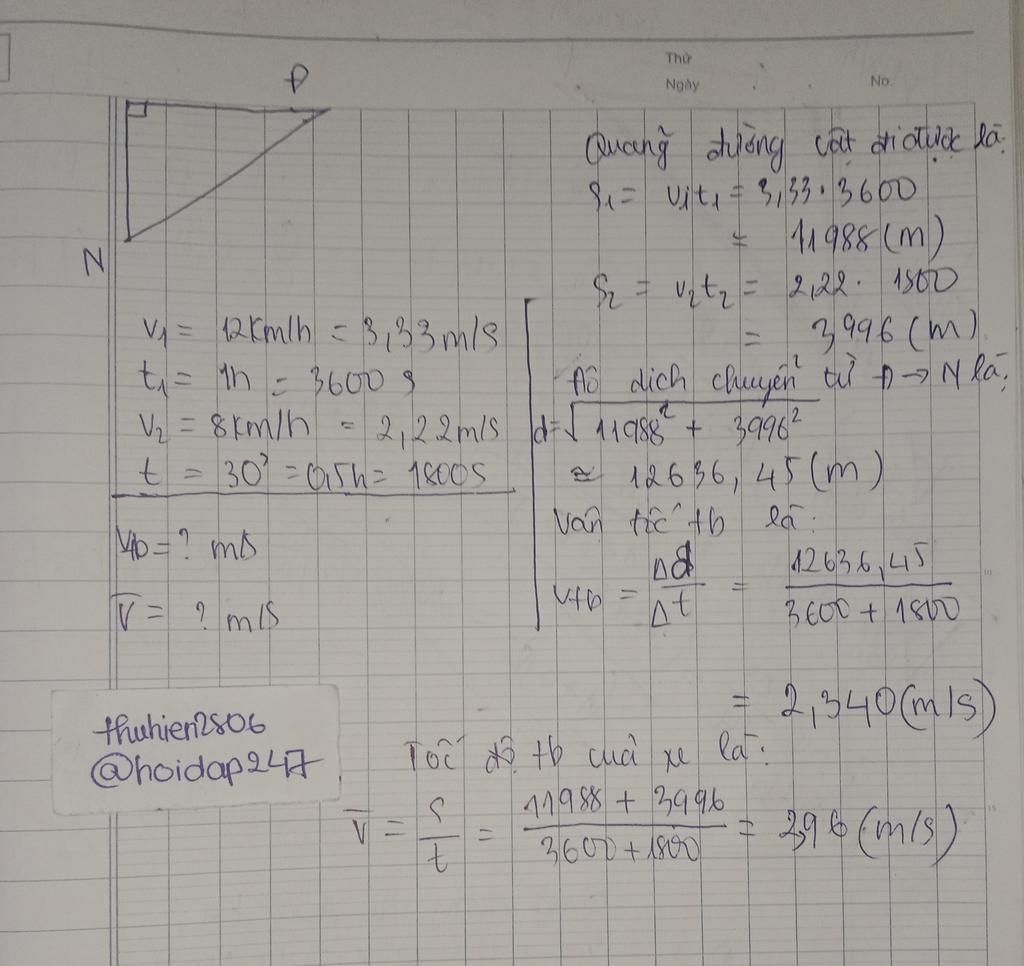 Thứ
Ngày
No.
Đ
N
v₁ = 12km/h = 3,33m/s
t₁ = 1h = 3600 s
v₂ = 8km/h = 2,22m/s
t = 30' = 0,5h = 1800s
vtb = ? m/s
v̅ = ? m/s
Quãng đường vật đi được là:
S₁ = v₁t₁ = 3,33 . 3600
= 11988 (m)
S₂ = v₂t₂ = 2,22 . 1800
= 3996 (m)
Độ dịch chuyển từ Đ → N là:
d = √11988² + 3996²
≈ 12636,45 (m)
Vận tốc tb là:
vtb = Δd/Δt = 12636,45/3600 + 1800
= 2,340 (m/s)
Tốc độ tb của xe là:
v̅ = S/t = 11988 + 3996/3600 + 1800 = 2,96 (m/s)
thuhien2806
@hoidap247